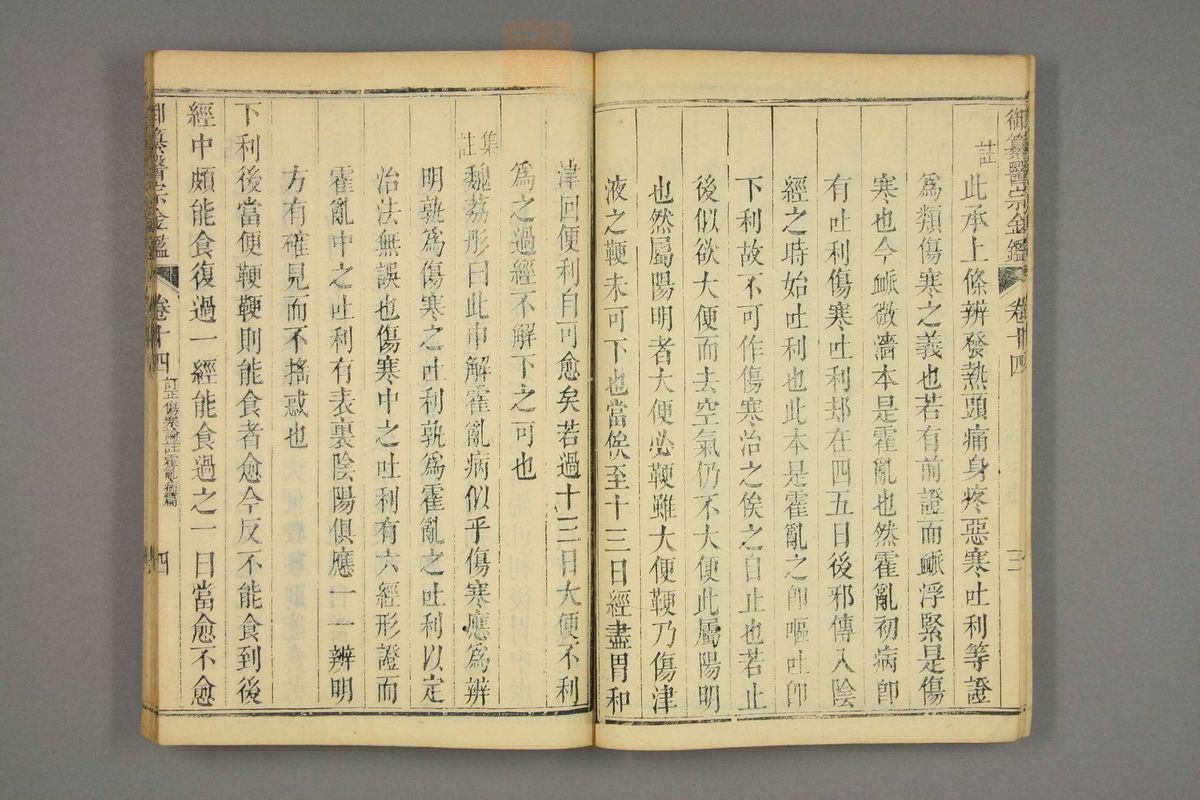 御纂醫宗金鑑 卷十四 三
註
此承上條辨發熱頭痛身疼惡寒吐利等證
爲類傷寒之義也若有前證而䘑浮緊是傷
寒也今䘑微濇本是霍亂也然霍亂初病卽
有吐利傷寒吐利却在四五日後邪傳入陰
經之時始吐利也此本是霍亂之卽嘔吐卽
下利故不可作傷寒治之俟之自止也若止
後似欲大便而去空氣仍不大便此屬陽明
也然屬陽明者大便必鞕雖大便鞕乃傷津
液之鞕未可下也當俟至十三日經盡胃和
津回便利自可愈矣若過十三日大便不利
爲之過經不解下之可也
集註
魏荔彤曰此申解霍亂病似乎傷寒應爲辨
明孰爲傷寒之吐利孰爲霍亂之吐利以定
治法無誤也傷寒中之吐利有六經形證而
霍亂中之吐利有表裏陰陽俱應一一辨明
方有確見而不搖惑也
下利後當便鞕鞕則能食者愈今反不能食到後
經中頗能食復過一經能食過之一日當愈不愈
御纂醫宗金鑑 卷十四 訂正傷寒論註霍亂病篇 四